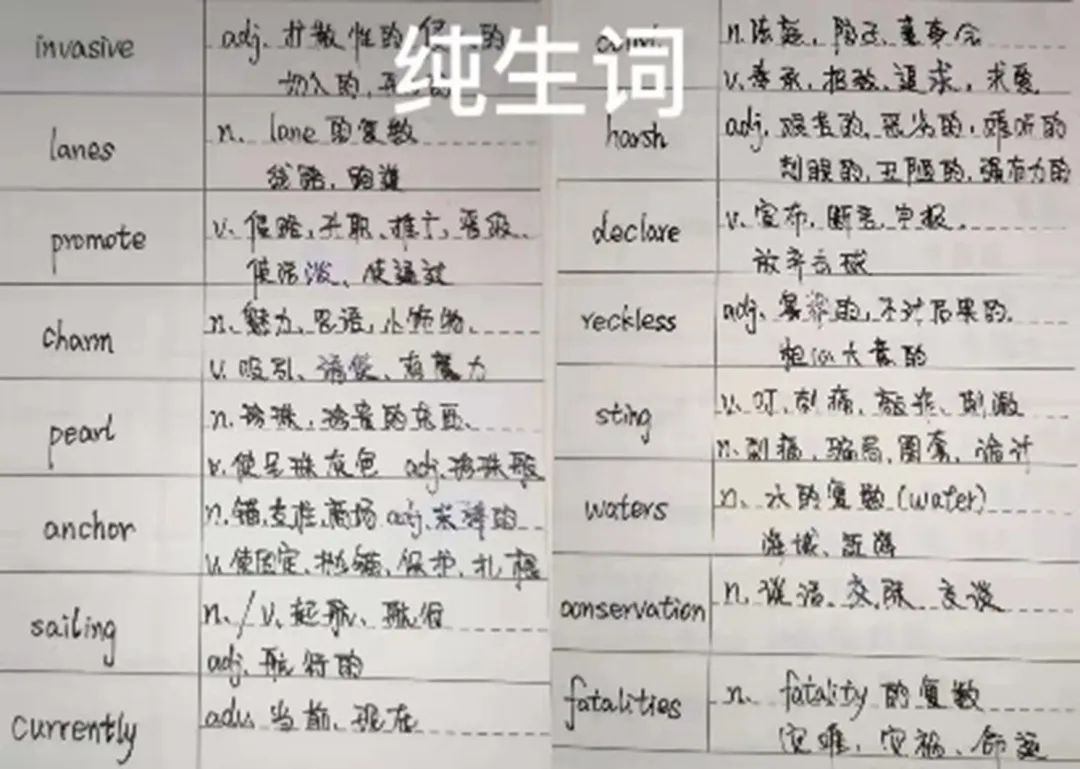 纯生词
invasive
adj. 扩散性的
切入的
lanes
n. lane 的复数
线路、跑道
promote
v. 促销、升职、推广、晋级、
使活泼、使通过
charm
n. 魅力、咒语、小饰物、
v. 吸引、有魔力
pearl
n. 珍珠、珍贵的东西、
v. 使呈珠灰色 adj. 珍珠
anchor
n. 锚、支柱、商场 adj.
v. 使固定、抛锚、保护、扎根
sailing
n. / v. 起航、航行
adj. 航行的
currently
adv. 当前、现在
n. 法庭、董事会
v. 奉承、招致、追求、求爱
harsh
adj. 艰苦的、恶劣的、难听的
刺眼的、丑陋的、强有力的
declare
v. 宣布、断言、申报、
放弃击球
reckless
adj. 鲁莽的、不计后果的、
粗心大意的
sting
v. 叮、刺痛、敲诈、刺激
n. 刺痛、骗局、圈套、诡计
waters
n. 水的复数 (water)
海域、近海
conservation
n. 谈话、交际、交谈
fatalities
n. fatality 的复数
灾难、灾祸、命运